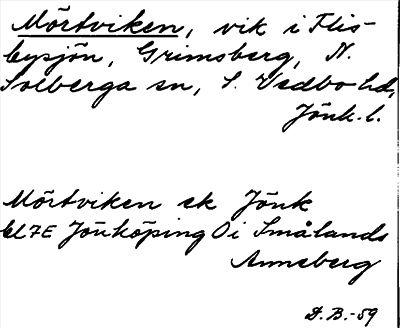 Mörtviken, vik i Flis-
bysjön, Grimsberg, N.
Solberga sn, S. Vedbo hd,
Jönk. l.
Mörtviken ek Jönk
bl 7E Jönköping O i Smålands
Anneberg
D. B. -59